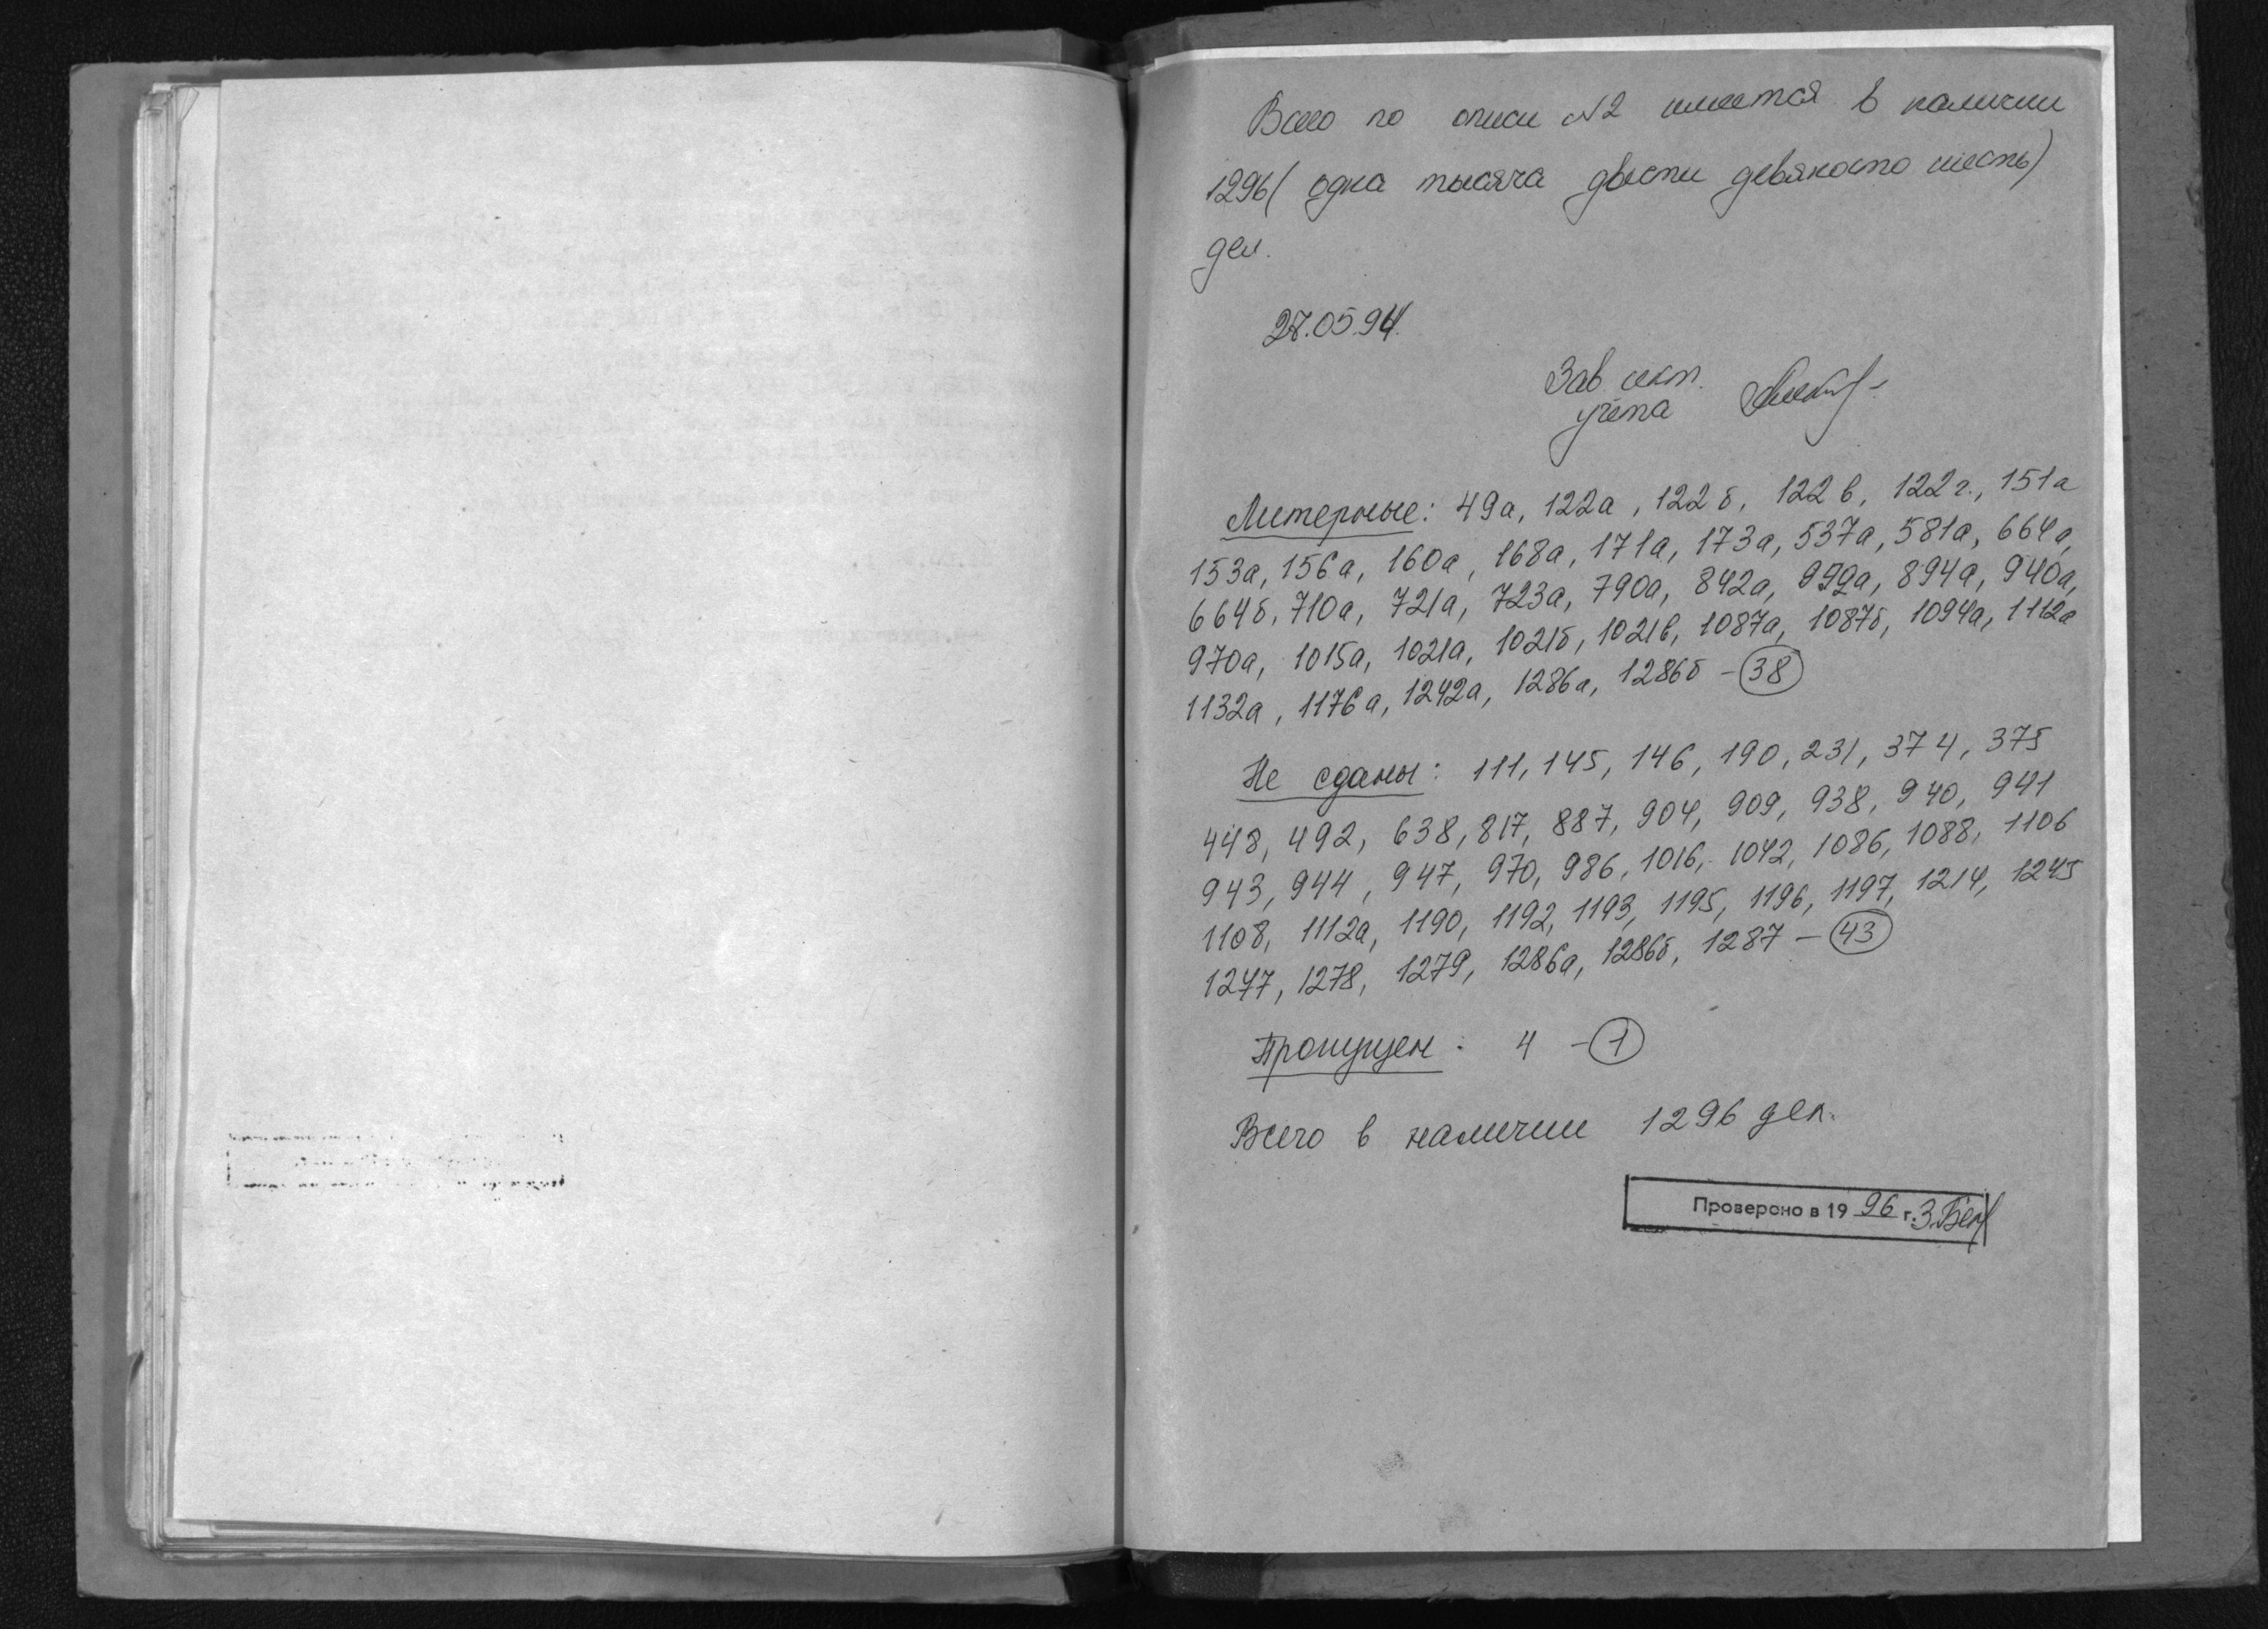 Всего по описи №2 имеется в наличии
1296 (одна тысяча двести девяносто шесть)
дел.
27.05.94.
Зав. сект.
учёта
Литерные: 49а, 122а, 122б, 122в, 122г., 151а
153а, 156а, 160а, 168а, 171а, 173а, 537а, 581а, 664а,
664б, 710а, 721а, 723а, 790а, 842а, 894а, 940а,
970а, 1015а, 1021а, 1021б, 1021в, 1087а, 1087б, 1094а, 1112а
1132а, 1176а, 1242а, 1286а, 1286б - 38
Не сданы: 111, 145, 146, 190, 231, 374, 375
448, 492, 638, 817, 887, 904, 909, 938, 940, 941
943, 944, 947, 970, 986, 1016, 1042, 1086, 1088, 1106
1108, 1112а, 1190, 1192, 1193, 1195, 1196, 1197, 1214, 1245
1247, 1278, 1279, 1286а, 1286б, 1287 - 43
Пропущен: 4 - 1
Всего в наличии 1296 дел.
Проверено в 1996 г.